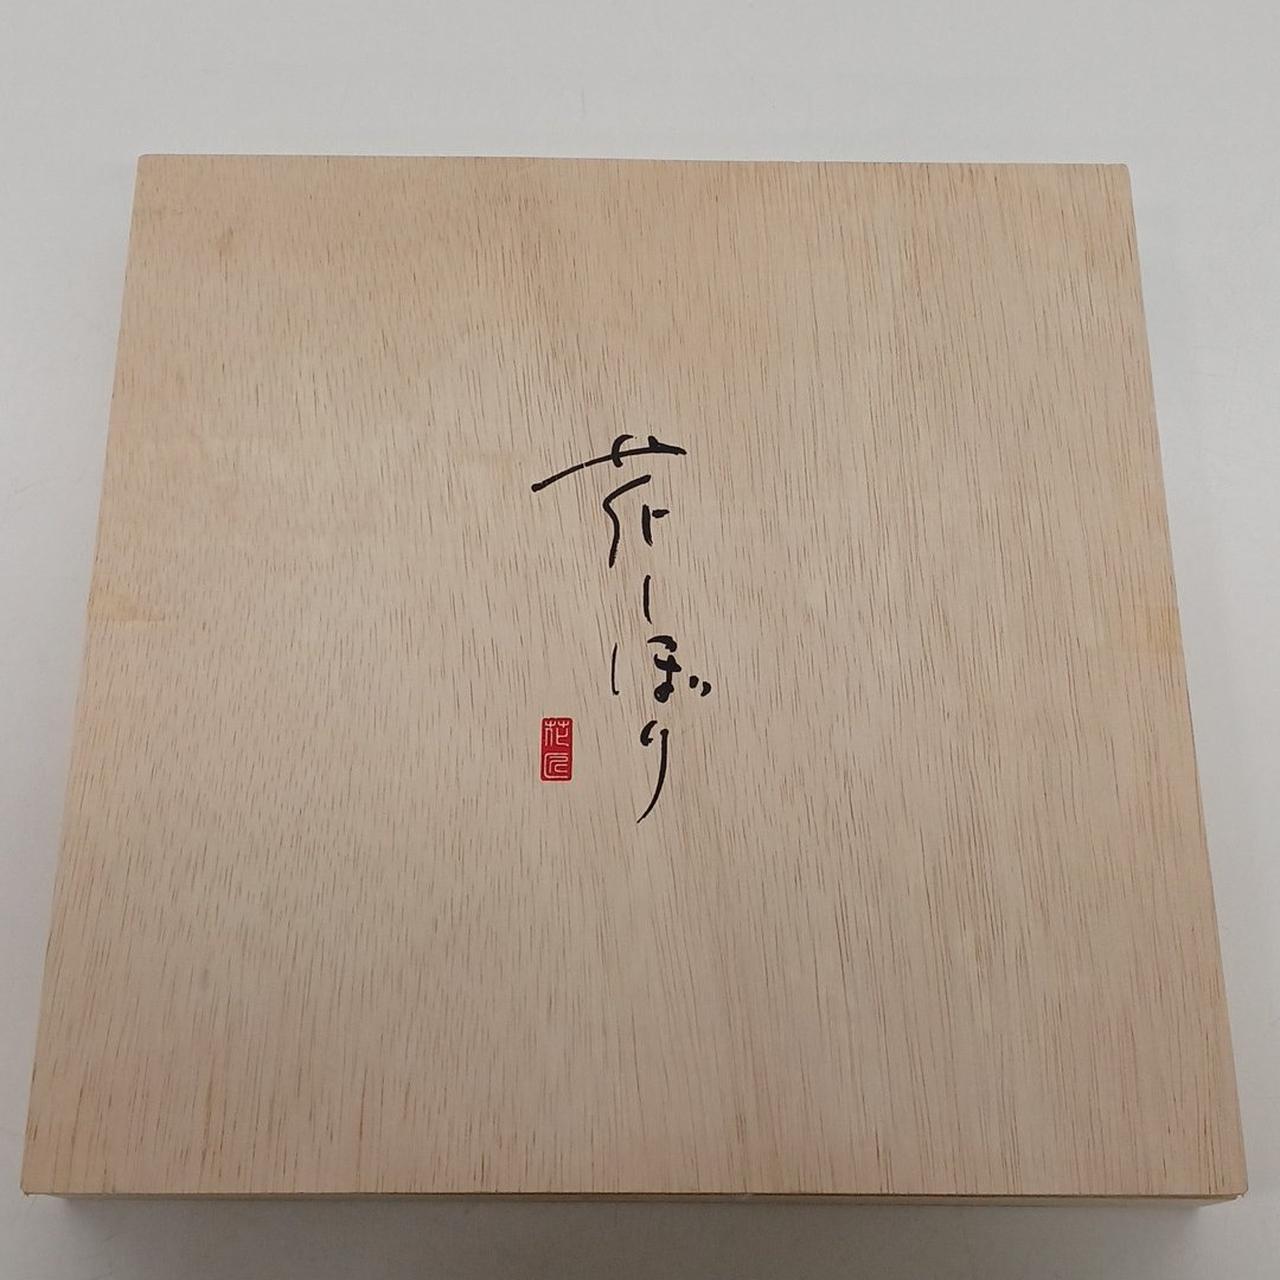 花しぼり
花匠